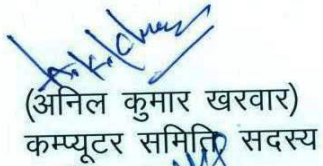 (अनिल कुमार खरवार)
कम्प्यूटर समिति सदस्य